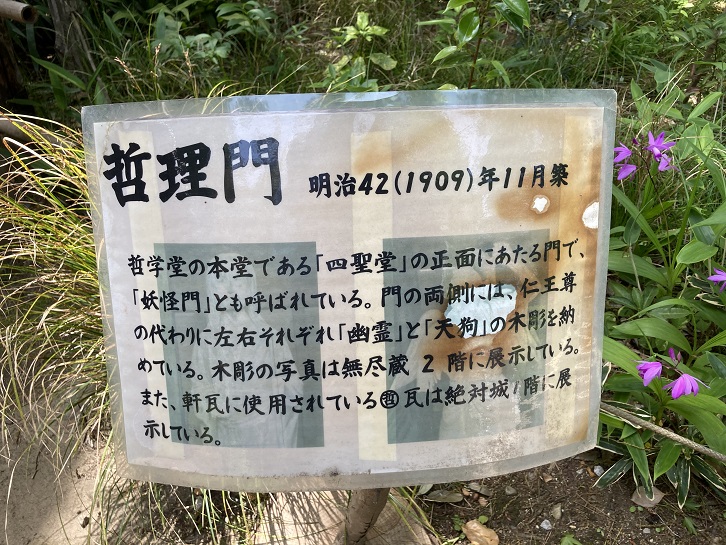 哲理門 明治42(1909)年11月築
哲学堂の本堂である「四聖堂」の正面にあたる門で、
「妖怪門」とも呼ばれている。門の両側には、仁王尊
の代わりに左右それぞれ「幽霊」と「天狗」の木彫を納
めている。木彫の写真は無尽蔵 2 階に展示している。
また、軒瓦に使用されている哲瓦は絶対城1階に展
示している。